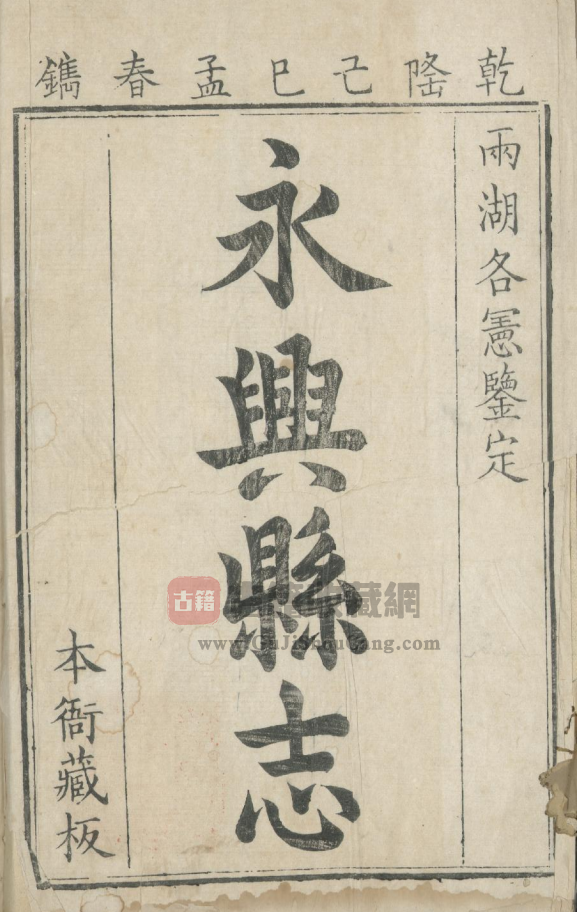 乾隆己巳孟春鐫
兩湖各憲鑒定
永興縣志
本衙藏板
古籍
藏網
www.GuJiShouCang.com